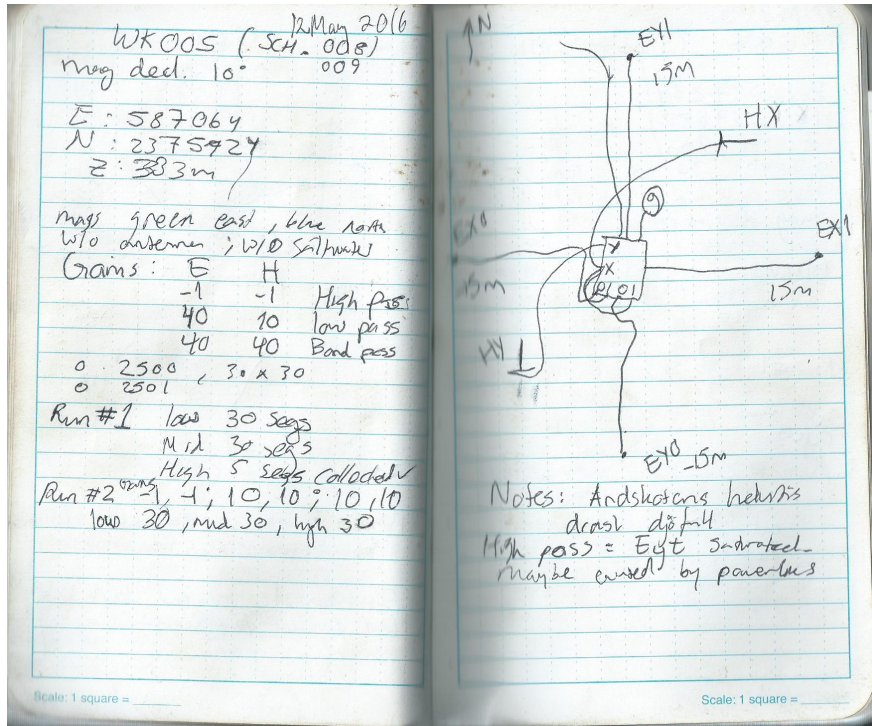 12 May 2016
WK005 (SCH. 008)
009
mag decl. 10°
E : 587064
N : 2375924
Z : 383m
mags green east, blue north
w/o antenna ; w/o Saltwater
Gains : E H
-1 -1 High pass
40 10 low pass
40 40 Band pass
0 2500 , 30 x 30
0 2501
Run #1 low 30 segs
Mid 30 segs
High 5 segs Collected
Run #2 Gains -1, -1; 10, 10; 10, 10
low 30, mid 30, high 30
Scale: 1 square =
N
EY1
15m
HX
9
EX0
Y
EX1
X
-15m
15m
HY
EY0 -15m
Notes: Andskotans helvitis
drasl djöfull
High pass = Eyt Saturated.
maybe caused by powerlines
Scale: 1 square =